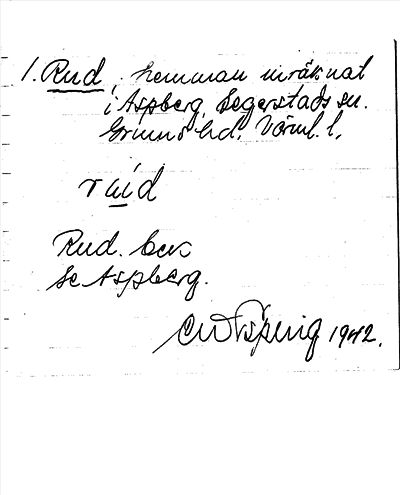 1. Rud, hemman inräknat
i Aspberg, Segerstads sn.
Grums hd. Värml. l.
Rud. bok
Se Aspberg.
1942.